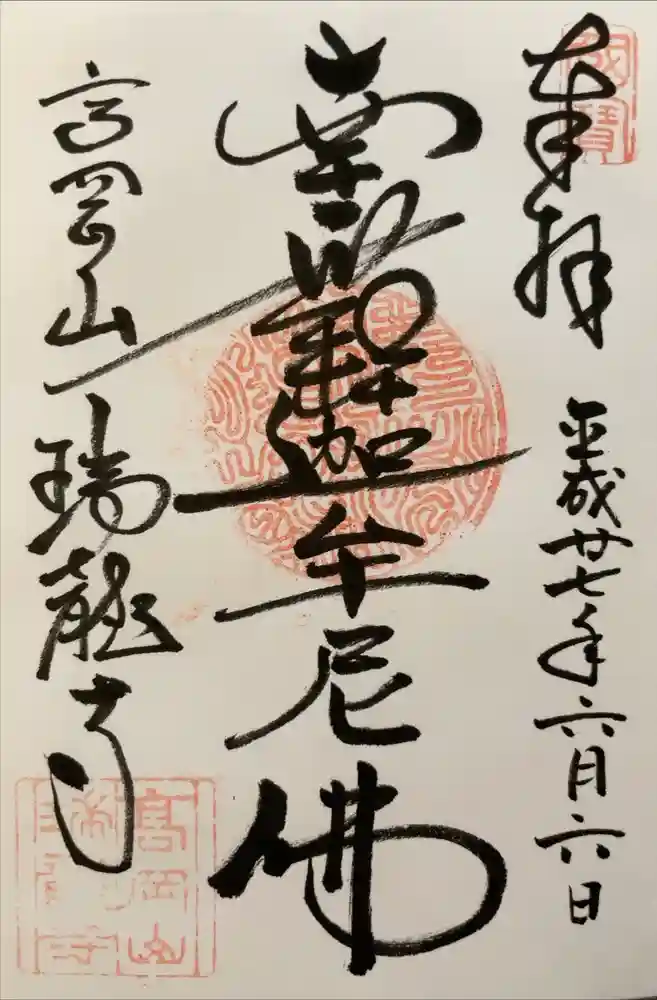 奉拝
平成廿七年六月六日
南無釋迦牟尼佛
高岡山
瑞龍寺
國寶
高岡山
瑞龍寺